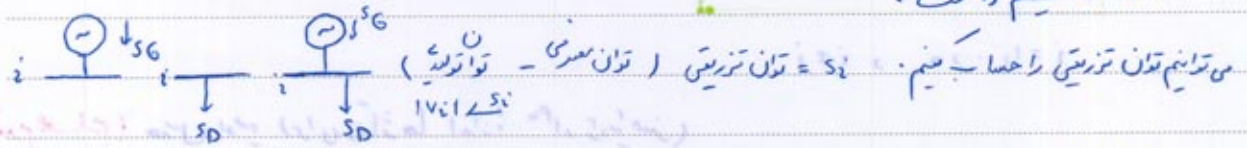 می توانیم توان تزریقی را حساب کنیم. Si = توان تزریقی ( توان مصرفی - توان تولیدی )
|Vi| ∠δi
i ~ ↓SG i SD i ~ ↓SG SD